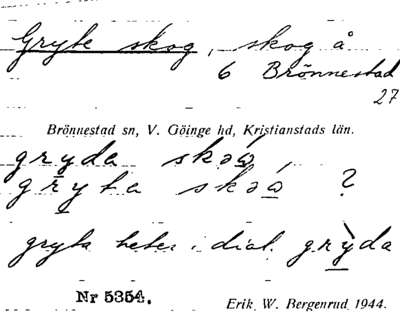 Gryte skog, skog å
6 Brönnestad
27
Brönnestad sn, V. Göinge hd, Kristianstads län.
gryda skǝɷ́
gryta skǝɷ́ ?
gryta heter i dial. grỳda
Nr 5354.
Erik W. Bergenrud 1944.